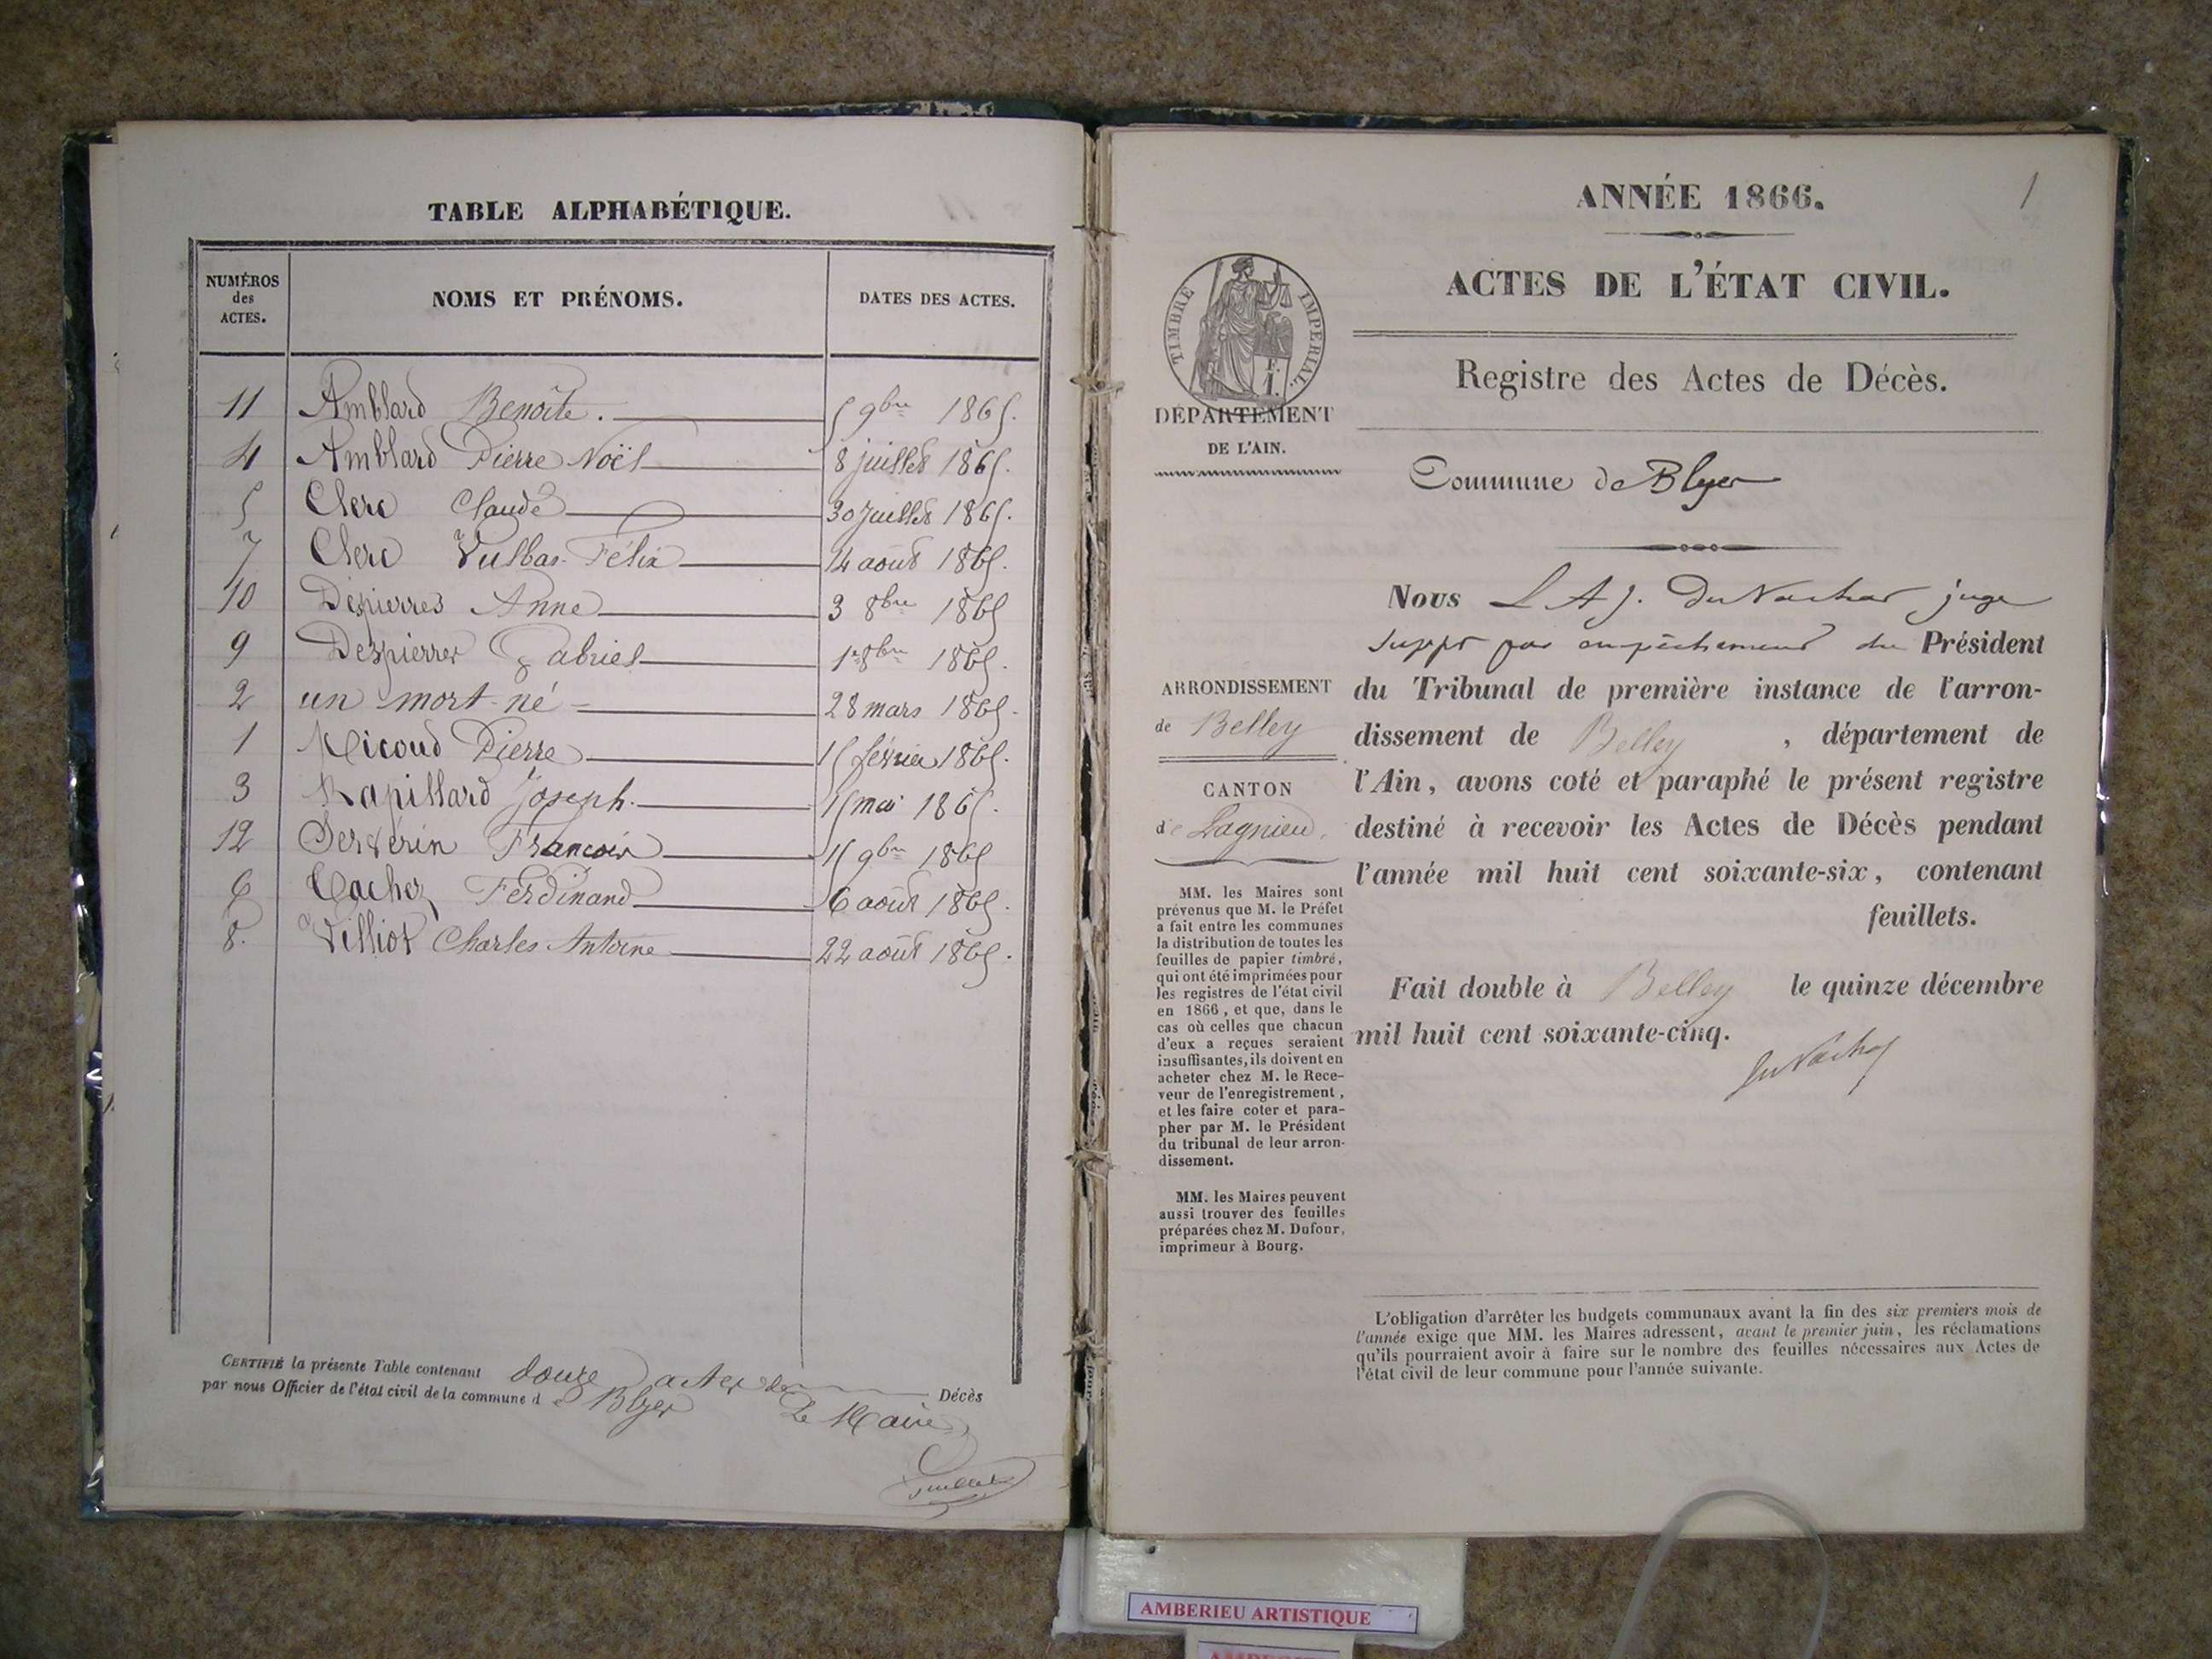 TABLE ALPHABÉTIQUE.
NUMÉROS des ACTES. NOMS ET PRÉNOMS. DATES DES ACTES.
11 Amblard Benoîte. 5 9bre 1865.
4 Amblard Pierre Noël 8 juillet 1865.
5 Clerc Claude 30 Juillet 1865.
7 Clerc Vulbas Félix 14 août 1865.
10 Despierres Anne 3 8bre 1865
9 Despierres Gabriel 1er 8bre 1865.
2 un mort-né 28 mars 1865.
1 Micoud Pierre 15 février 1865.
3 Rapillard Joseph. 15 mai 1865.
12 Serverin François 15 9bre 1865
6 Ferdinand 6 août 1865.
8. Villiot Charles Antoine 22 août 1865.
CERTIFIÉ la présente Table contenant douze actes de Décès
par nous Officier de l'état civil de la commune d e Blyes Le Maire
1
ANNÉE 1866.
ACTES DE L'ÉTAT CIVIL.
TIMBRE IMPÉRIAL.
Registre des Actes de Décès.
DÉPARTEMENT
DE L'AIN.
Commune de Blyes
Nous L A J. juge
suppt par empêchement du Président
du Tribunal de première instance de l'arron-
dissement de Belley, département de
l'Ain, avons coté et paraphé le présent registre
destiné à recevoir les Actes de Décès pendant
l'année mil huit cent soixante-six, contenant
feuillets.
Fait double à Belley le quinze décembre
mil huit cent soixante-cinq.
ARRONDISSEMENT
de Belley
CANTON
de Lagnieu.
MM. les Maires sont
prévenus que M. le Préfet
a fait entre les communes
la distribution de toutes les
feuilles de papier timbré,
qui ont été imprimées pour
les registres de l'état civil
en 1866, et que, dans le
cas où celles que chacun
d'eux a reçues seraient
insuffisantes, ils doivent en
acheter chez M. le Rece-
veur de l'enregistrement,
et les faire coter et para-
pher par M. le Président
du tribunal de leur arron-
dissement.
MM. les Maires peuvent
aussi trouver des feuilles
préparées chez M. Dufour,
imprimeur à Bourg.
L'obligation d'arrêter les budgets communaux avant la fin des six premiers mois de
l'année exige que MM. les Maires adressent, avant le premier juin, les réclamations
qu'ils pourraient avoir à faire sur le nombre des feuilles nécessaires aux Actes de
l'état civil de leur commune pour l'année suivante.
AMBERIEU ARTISTIQUE